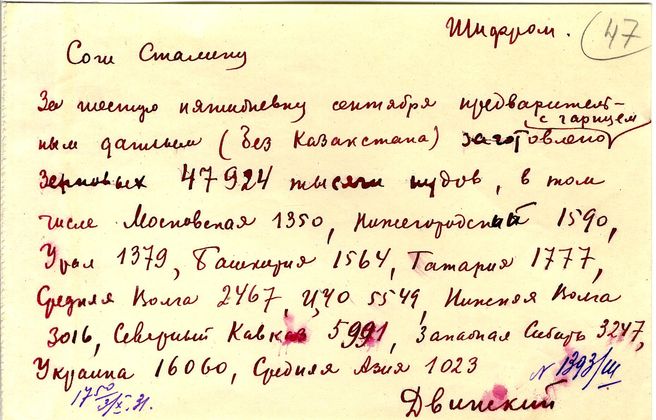 Шифром. 47
Сочи Сталину
За шестую пятидневку сентября предваритель-
ным данным (без Казахстана) заготовлено с гарнцем
Зерновых 47924 тысячи пудов, в том
числе Московская 1350, Нижегородский 1590,
Урал 1379, Башкирия 1564, Татария 1777,
Средняя Волга 2467, ЦЧО 5549, Нижняя Волга
3016, Северный Кавказ 5991, Западная Сибирь 3247,
Украина 16060, Средняя Азия 1023
17 50 3/X.31. N 1393/ш
Двинский